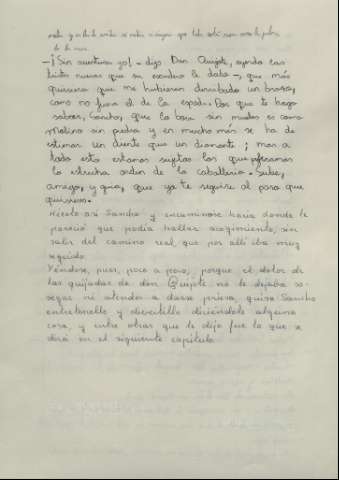 -¡Sin ventura yo! - dijo Don Quijote, oyendo las
tristes nuevas que su escudero le daba -, que más
quisiera que me hubieran derribado un brazo,
como no fuera el de la espada. Por que te hago
saber, Sancho, que la boca sin muelas es como
molino sin piedra y en mucho más se ha de
estimar un diente que un diamante; mas a
todo esto estamos sujetos los que profesamos
la estrecha orden de la caballería. Sube,
amigo, y guía, que ya te seguiré al paso que
quisieres.
Hízolo así Sancho y encaminose hacia donde le
pareció que podía hallar acogimiento, sin
salir del camino real, que por allí iba muy
seguido.
Yéndose, pues, poco a poco, porque el dolor de
las quijadas de don Quijote no le dejaba so-
segar ni atender a darse priesa, quiso Sancho
entretenelle y divertille diciéndole alguna
cosa, y entre otras que le dijo fue lo que se
dirá en el siguiente capítulo.